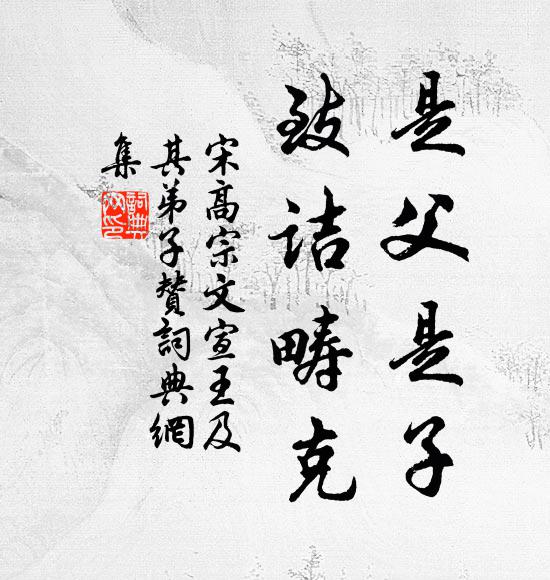 是父是子
致诘畴克
宋高宗文宣王及
其弟子赞詞典網
集
詞典網印